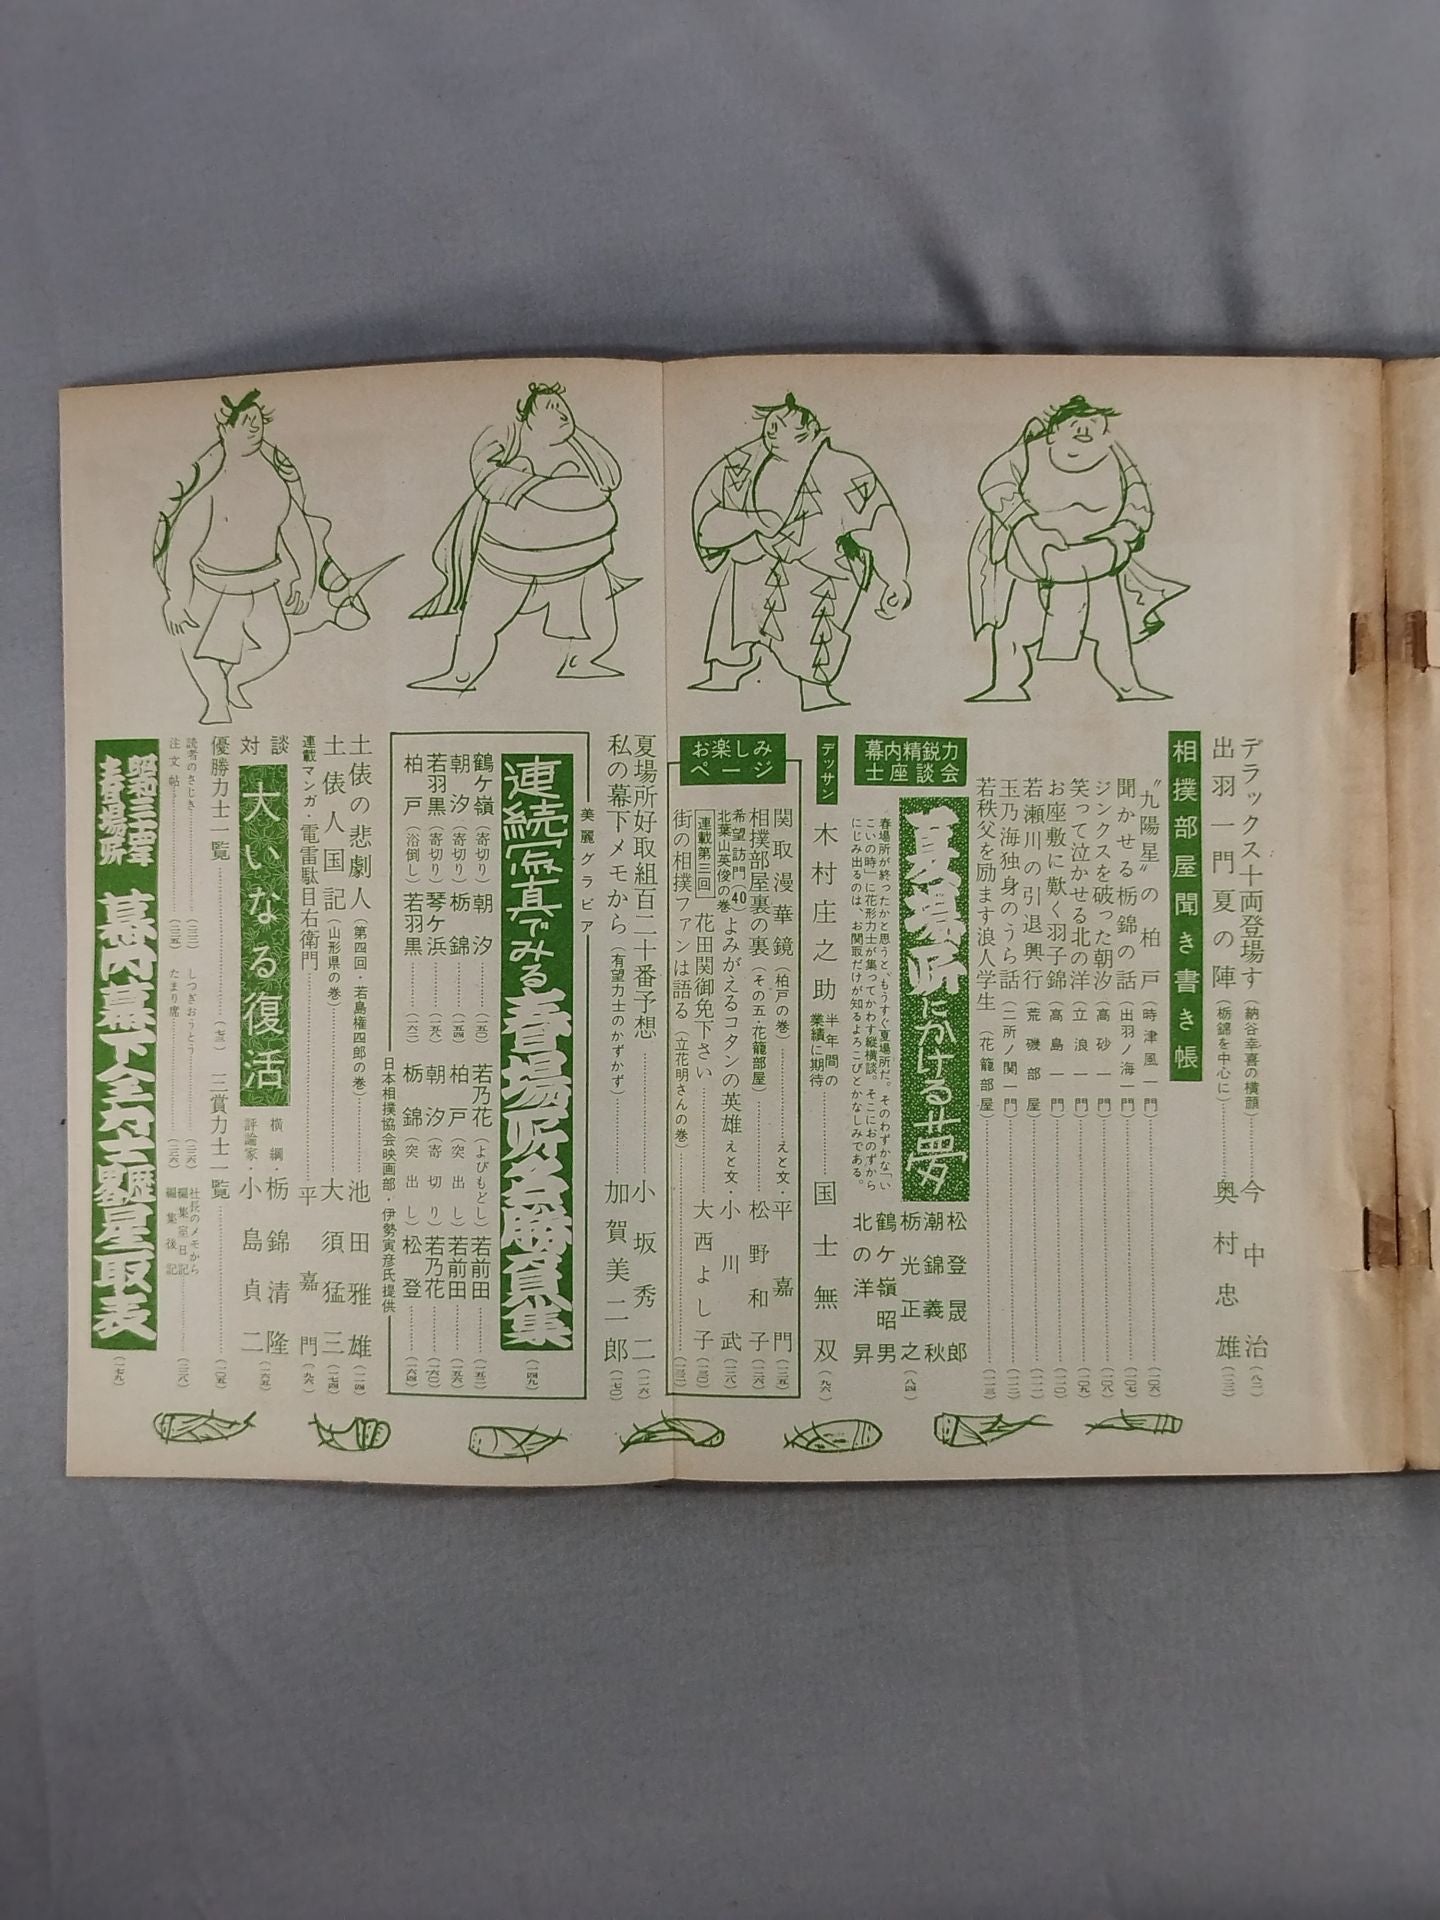 デラックス十両登場す(納谷幸喜の横顔)……今中治(八二)
出羽一門夏の陣(栃錦を中心に)……奥村忠雄(一二二)
相撲部屋聞き書き帳
〝九陽星〟の柏戸(時津風一門)……(一〇六)
聞かせる栃錦の話(出羽ノ海一門)……(一〇七)
ジンクスを破った朝汐(高砂一門)……(一〇八)
笑って泣かせる北の洋(立浪一門)……(一〇九)
お座敷に歎く羽子錦(高島一門)……(一一〇)
若瀬川の引退興行(荒磯部屋)……(一一一)
玉乃海独身のうら話(二所ノ関一門)……(一一二)
若秩父を励ます浪人学生(花籠部屋)……(一一三)
幕内精鋭力士座談会
夏場所にかける夢
春場所が終ったかと思うと、もうすぐ夏場所だ。そのわずかな〝いこいの時〟に花形力士が集ってかわす縦横談。そこにおのずからにじみ出るのは、お関取だけが知るよろこびとかなしみである。
松登晟郎
潮錦義秋
栃光正之
鶴ケ嶺昭男
北の洋昇
(八四)
デッサン
木村庄之助 半年間の業績に期待……国士無双(九六)
お楽しみページ
関取漫華鏡(柏戸の巻)……えと文・平嘉門(一二五)
相撲部屋裏の裏(その五・花籠部屋)……松野和子(一二六)
希望訪門(40)北葉山英俊の巻 よみがえるコタンの英雄 えと文・小川武(一二八)
連載第三回 花田関御免下さい……大西よし子(一三〇)
街の相撲ファンは語る(立花明さんの巻)……(一三二)
夏場所好取組百二十番予想……小坂秀二(一一六)
私の幕下メモから(有望力士のかずかず)……加賀美二郎(一七〇)
美麗グラビア
連続写真でみる春場所名勝負集
(一四九)
鶴ケ嶺(寄切り)朝汐……(一五〇) 若乃花(よびもどし)若前田……(一五二)
朝汐(寄切り)栃錦……(一五四) 柏戸(突出し)若前田……(一五六)
若羽黒(寄切り)琴ケ浜……(一五八) 朝汐(寄切り)若乃花……(一六〇)
柏戸(浴倒し)若羽黒……(一六二) 栃錦(突出し)松登……(一六四)
日本相撲協会映画部・伊勢寅彦氏提供
土俵の悲劇人(第四回・若島権四郎の巻)……池田雅雄(一一四)
土俵人国記(山形県の巻)……大須猛三(七四)
連載マンガ・電雷駄目右衛門……平嘉門(九六)
対談 大いなる復活
横綱・栃錦清隆
評論家・小島貞二
(一六五)
優勝力士一覧……(七三) 三賞力士一覧……(一〇五)
読者のさじき……(三三) しつぎおうとう……(三六) 社長のメモから
編集室日記
注文帖……(三五) たまり席……(三六) 編集後記……(三八)
昭和三十四年春場所 幕内幕下全力士星取表
(一七九)